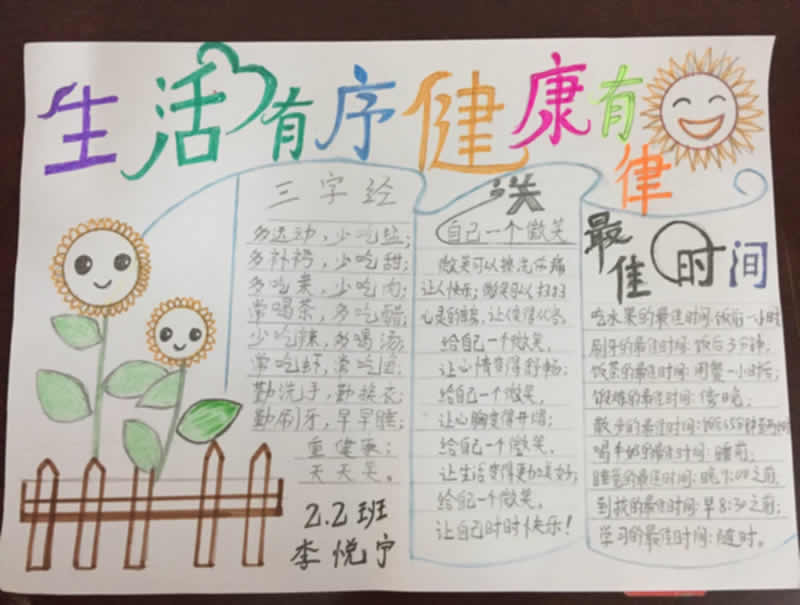 生活有序健康有律
三字经
多运动，少吃盐；
多补钙，少吃甜；
多吃素，少吃肉；
常喝茶，多吃醋；
少吃辣，多喝汤；
常吃虾，常吃豆；
勤洗手，勤换衣；
勤刷牙，早早睡；
重健康；
天天笑。
2.2班
李悦宁
送
自己一个微笑
微笑可以擦洗伤痛
让人快乐；微笑可以扫扫
心灵的，让人
给自己一个微笑，
让心情变得舒畅；
给自己一个微笑，
让心胸变得开阔；
给自己一个微笑，
让生活变得更加美好；
给自己一个微笑，
让自己时时快乐！
最佳时间
吃水果的最佳时间：饭前一小时
刷牙的最佳时间：饭后3分钟，
饮茶的最佳时间：用餐一小时后；
的最佳时间：傍晚，
散步的最佳时间：饭后45分钟
喝牛奶的最佳时间：睡前；
睡觉的最佳时间：晚9:00之前，
到校的最佳时间：早8:30之前；
学习的最佳时间：随时。